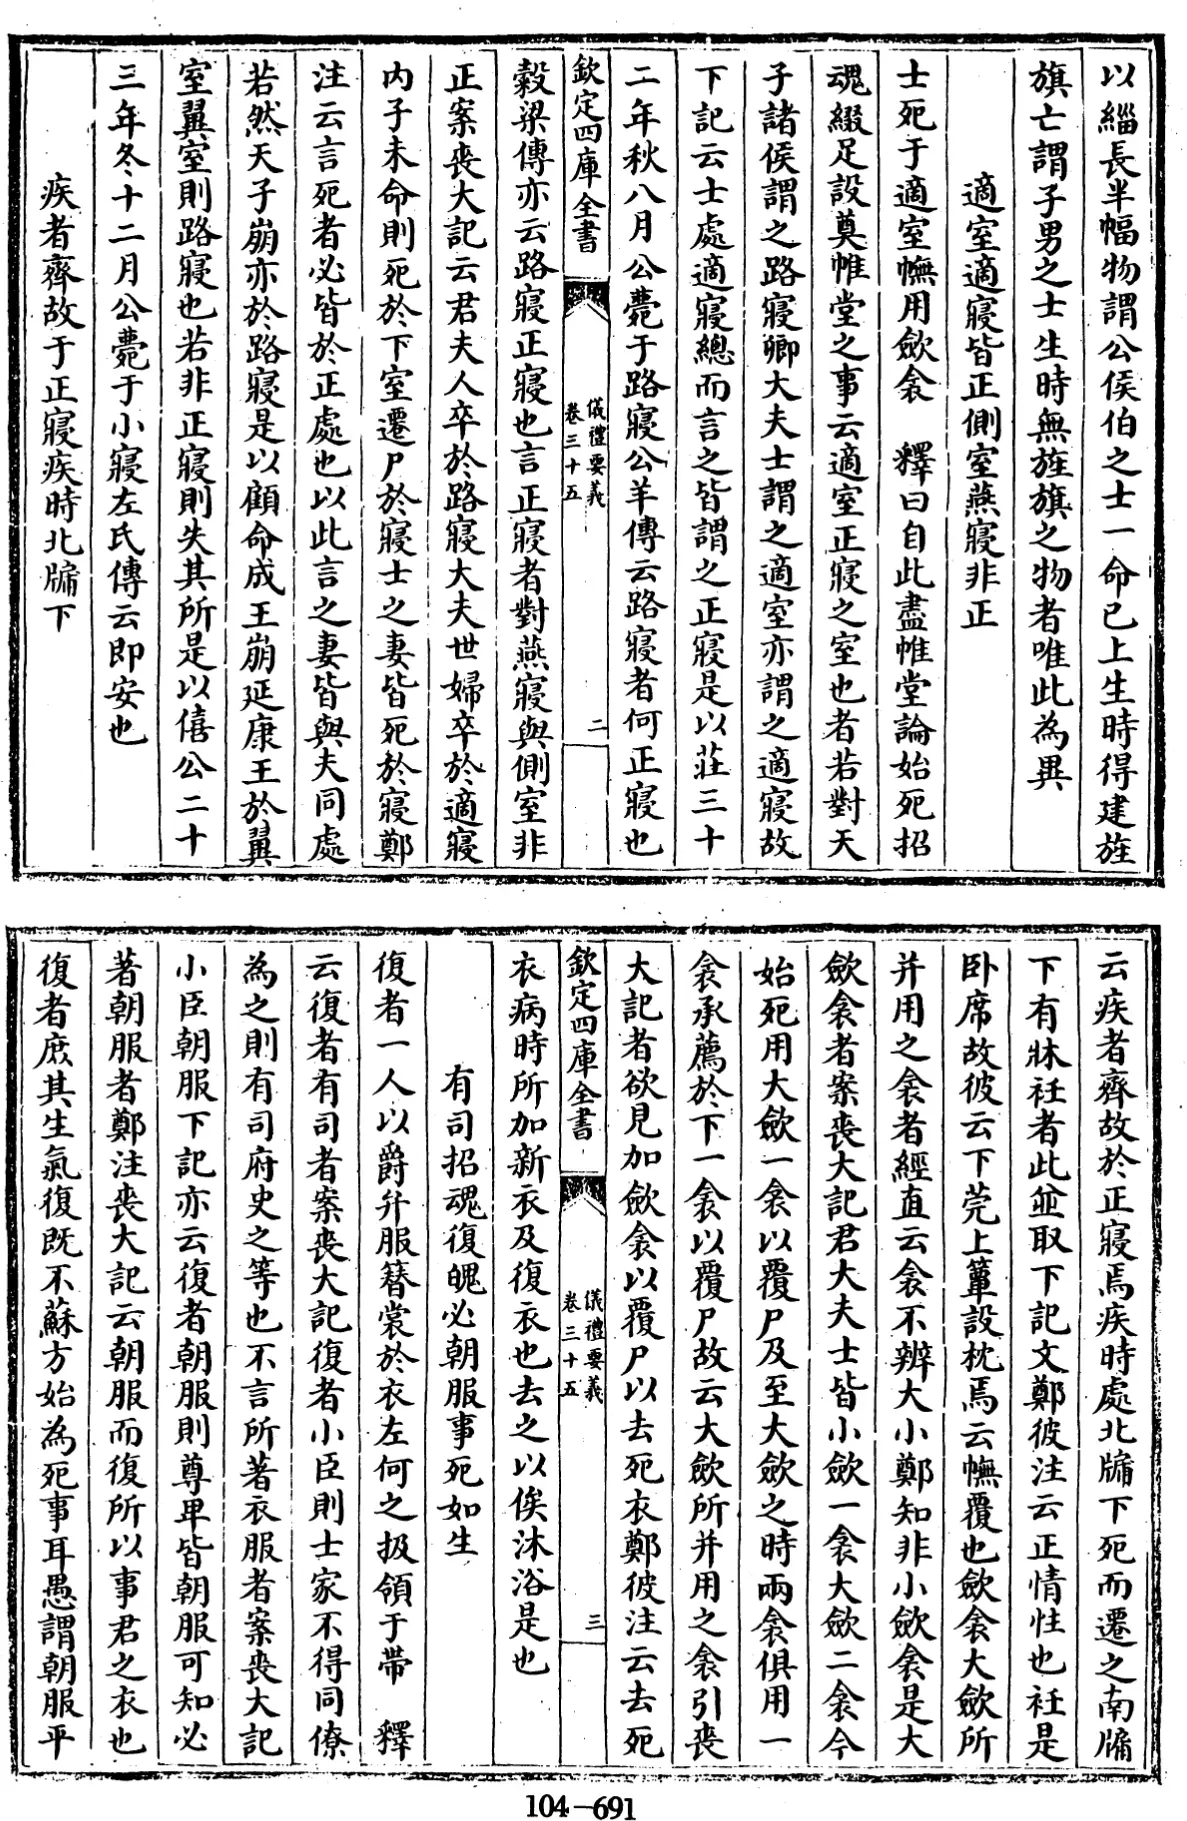 以緇長半幅物謂公侯伯之士一命已上生時得建旌
旗亡謂子男之士生時無旌旗之物者唯此為異
適室適寢皆正側室燕寢非正
士死于適室幠用斂衾　釋曰自此盡帷堂論始死招
魂綴足設奠帷堂之事云適室正寢之室也者若對天
子諸侯謂之路寢卿大夫士謂之適室亦謂之適寢故
下記云士處適寢總而言之皆謂之正寢是以莊三十
二年秋八月公薨于路寢公羊傳云路寢者何正寢也
欽定四庫全書
儀禮要義
卷三十五
二
穀梁傳亦云路寢正寢也言正寢者對燕寢與側室非
正案喪大記云君夫人卒於路寢大夫世婦卒於適寢
内子未命則死於下室遷尸於寢士之妻皆死於寢鄭
注云言死者必皆於正處也以此言之妻皆與夫同處
若然天子崩亦於路寢是以顧命成王崩延康王於翼
室翼室則路寢也若非正寢則失其所是以僖公二十
三年冬十二月公薨于小寢左氏傳云即安也
疾者齊故于正寢疾時北牖下
云疾者齊故於正寢焉疾時處北牖下死而遷之南牖
下有牀衽者此並取下記文鄭彼注云正情性也衽是
卧席故彼云下莞上簟設枕焉云幠覆也斂衾大斂所
并用之衾者經直云衾不辨大小鄭知非小斂衾是大
斂衾者案喪大記君大夫士皆小斂一衾大斂二衾今
始死用大斂一衾以覆尸及至大斂之時兩衾俱用一
衾承薦於下一衾以覆尸故云大斂所并用之衾引喪
大記者欲見加斂衾以覆尸以去死衣鄭彼注云去死
欽定四庫全書
儀禮要義
卷三十五
三
衣病時所加新衣及復衣也去之以俟沐浴是也
有司招魂復魄必朝服事死如生
復者一人以爵弁服簪裳於衣左何之扱領于帶　釋
云復者有司者案喪大記復者小臣則士家不得同僚
為之則有司府史之等也不言所著衣服者案喪大記
小臣朝服下記亦云復者朝服則尊卑皆朝服可知必
著朝服者鄭注喪大記云朝服而復所以事君之衣也
復者庶其生氣復既不蘇方始為死事耳愚謂朝服平
104-691